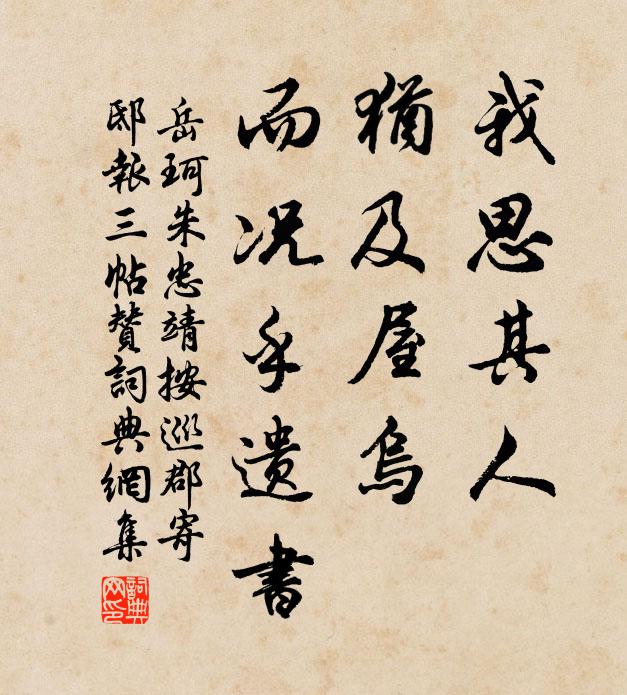 我思其人
猶及屋烏
而况乎遺書
岳珂朱忠靖按巡郡寄
邸報三帖贊詞典網集
詞典網印